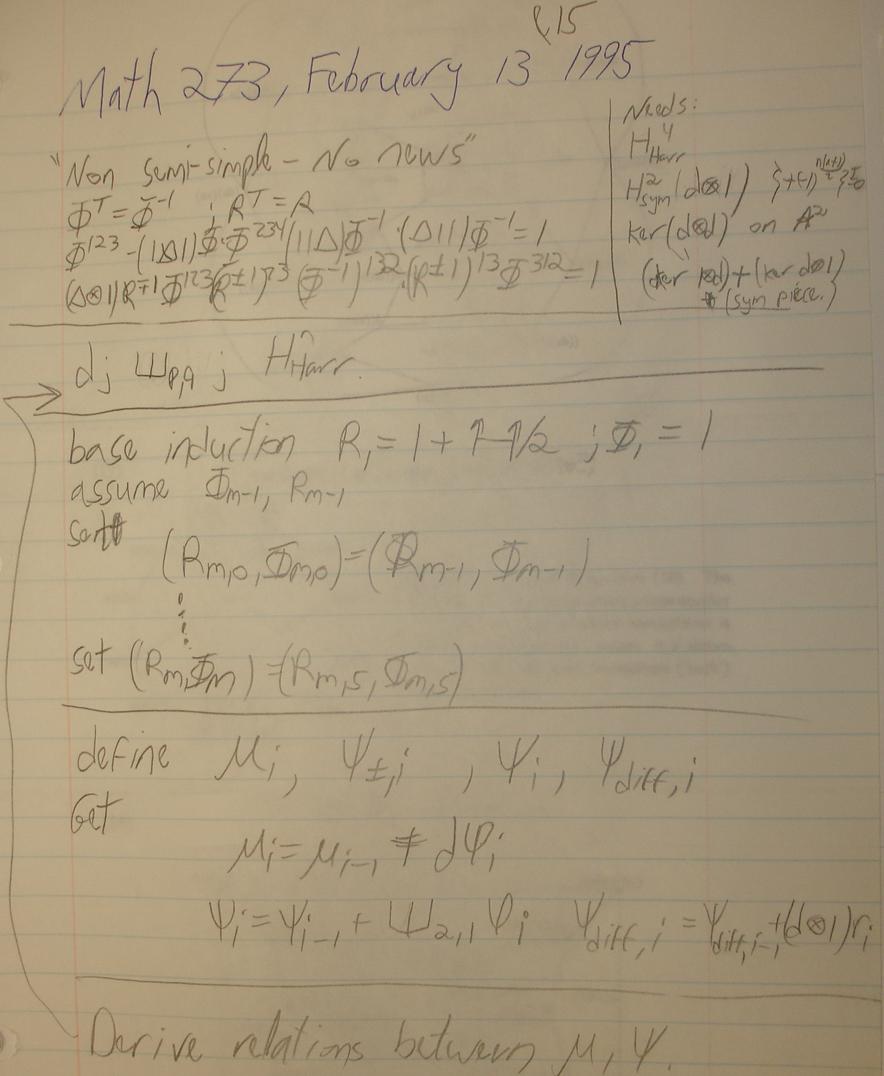 &15
Math 273, February 13 1995
"Non semi-simple - No news"
Φ^T = Φ^-1 ; R^T = R
Φ^123 · (1Δ1)Φ · Φ^234 (11Δ)Φ^-1 · (Δ11)Φ^-1 = 1
(Δ⊗1)R^∓1 Φ^123 (R^±1)^23 (Φ^-1)^132 · (R^±1)^13 Φ^312 = 1
Needs:
H^4_Harr
H^2_sym (d⊗1)
ker(d⊗d) on A^2
(ker 1⊗d) + (ker d⊗1)
(sym piece.)
d; Ш_p,q ; H^n_Harr.
base induction R_1 = 1 + /2 ; Φ_1 = 1
assume Φ_m-1, R_m-1
set
(R_m,0, Φ_m,0) = (R_m-1, Φ_m-1)
⋮
set (R_m, Φ_m) = (R_m,5, Φ_m,5)
define μ_i, Ψ_±,i , Ψ_i, Ψ_diff,i
Get
μ_i = μ_i-1 + dφ_i
Ψ_i = Ψ_i-1 + Ш_2,1 φ_i Ψ_diff,i = Ψ_diff,i-1 + (d⊗1)r_i
Derive relations between μ, Ψ.